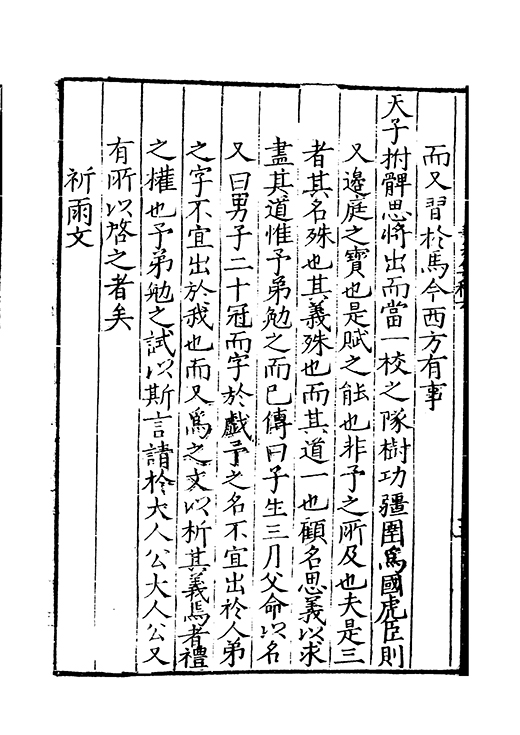 而又習於馬今西方有事
天子拊髀思將出而當一校之隊樹功疆圉爲國虎臣則
又邊庭之寶也是賦之能也非予之所及也夫是三
者其名殊也其義殊也而其道一也顧名思義以求
盡其道惟予弟勉之而已傳曰子生三月父命以名
又曰男子二十冠而字於戲予之名不宜出於人弟
之字不宜出於我也而又爲之文以析其義焉者禮
之權也予弟勉之試以斯言請於大人公大人公又
有所以啓之者矣
祈雨文